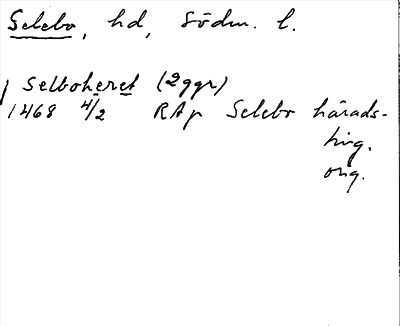 Selebo, hd, Södm. l.
/ Selboheret (2ggr)
1468 4/2 RAp Selebo härads-
ting.
orig.